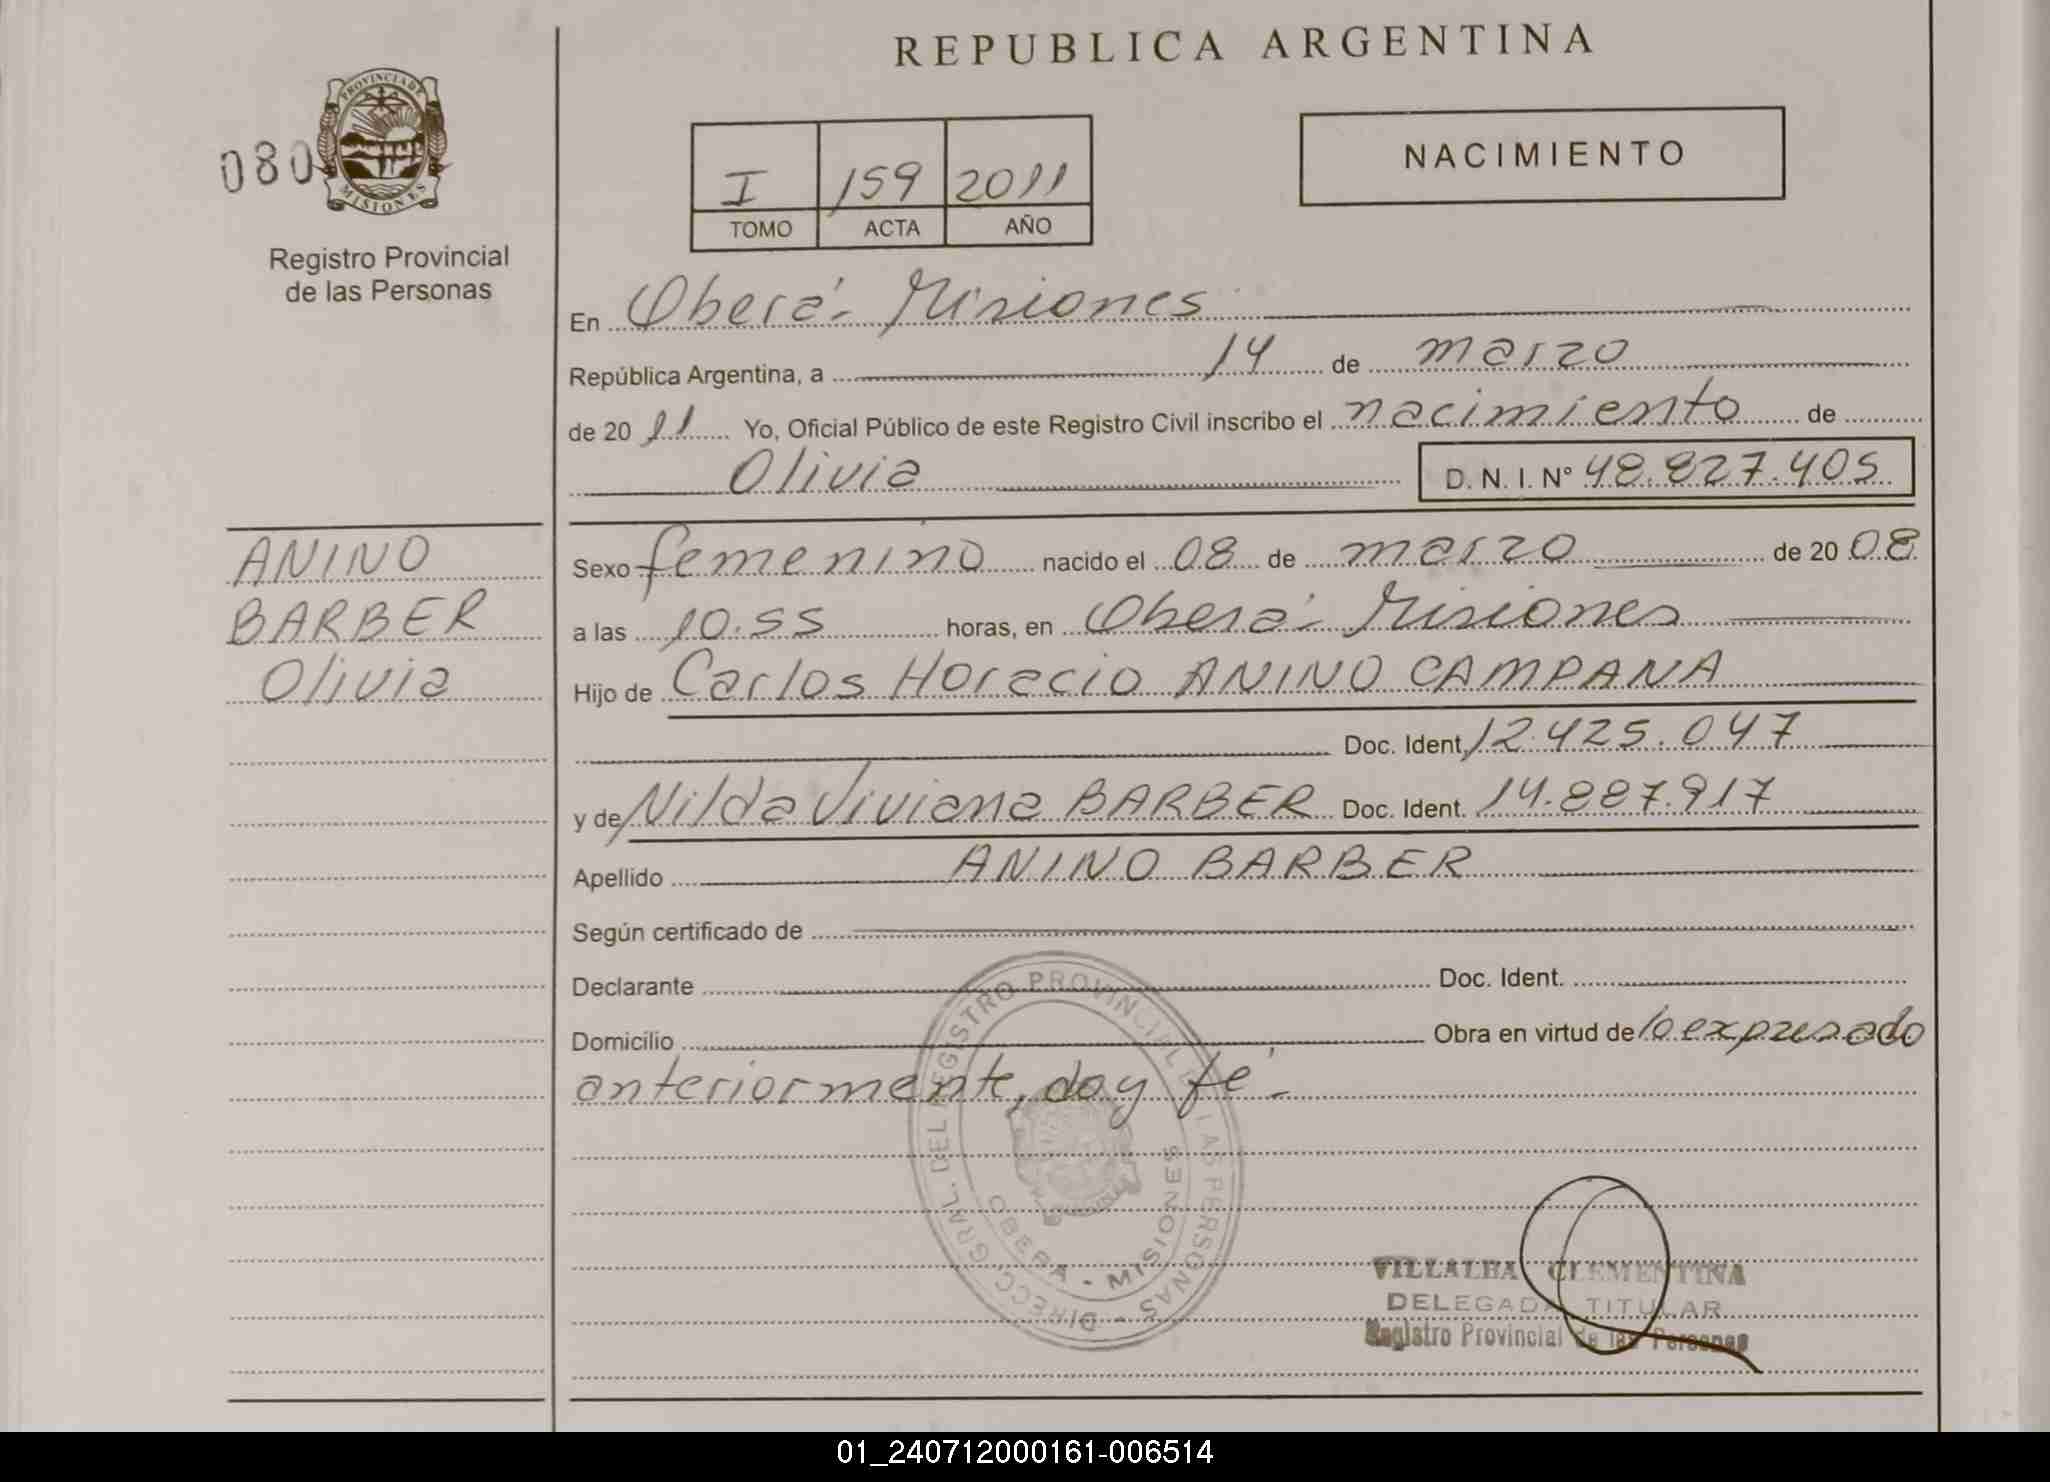 REPUBLICA ARGENTINA
PROVINCIA DE MISIONES
080
Registro Provincial
de las Personas
I 159 2011
TOMO ACTA AÑO
NACIMIENTO
En Oberá - Misiones
República Argentina, a 14 de marzo
de 2011 Yo, Oficial Público de este Registro Civil inscribo el nacimiento de
Olivia D. N. I. Nº 48.827.405
ANINO
BARBER
Olivia
Sexo femenino nacido el 08 de marzo de 2008
a las 10.55 horas, en Oberá - Misiones
Hijo de Carlos Horacio ANINO CAMPANA
Doc. Ident. 12.425.047
y de Nilda Viviana BARBER Doc. Ident. 14.887.917
Apellido ANINO BARBER
Según certificado de
Declarante Doc. Ident.
Domicilio Obra en virtud de lo expresado
anteriormente, doy fé -
DIRECC. GRAL. DEL REGISTRO PROVINCIAL DE LAS PERSONAS -
OBERA - MISIONES
VILLALBA CLEMENTINA
DELEGADA TITULAR
Registro Provincial de las Personas
01_240712000161-006514